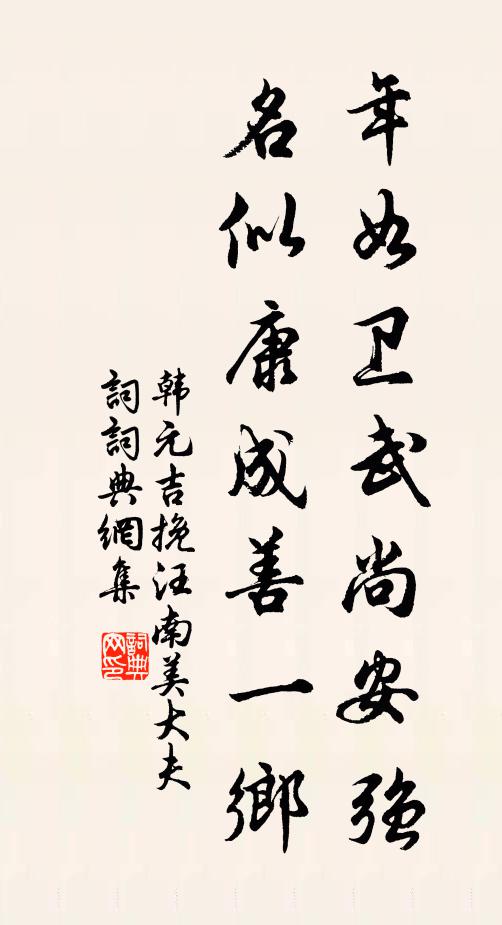 年如卫武尚安强
名似康成善一鄉
韩元吉挽汪南美大夫
詞詞典網集
詞典网印